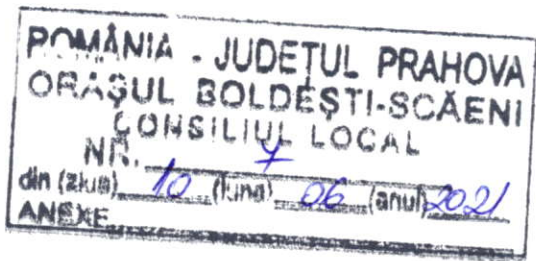 ROMÂNIA - JUDEȚUL PRAHOVA
ORAȘUL BOLDEȘTI-SCĂENI
CONSILIUL LOCAL
NR. 7
din (ziua) 10 (luna) 06 (anul) 2021
ANEXE